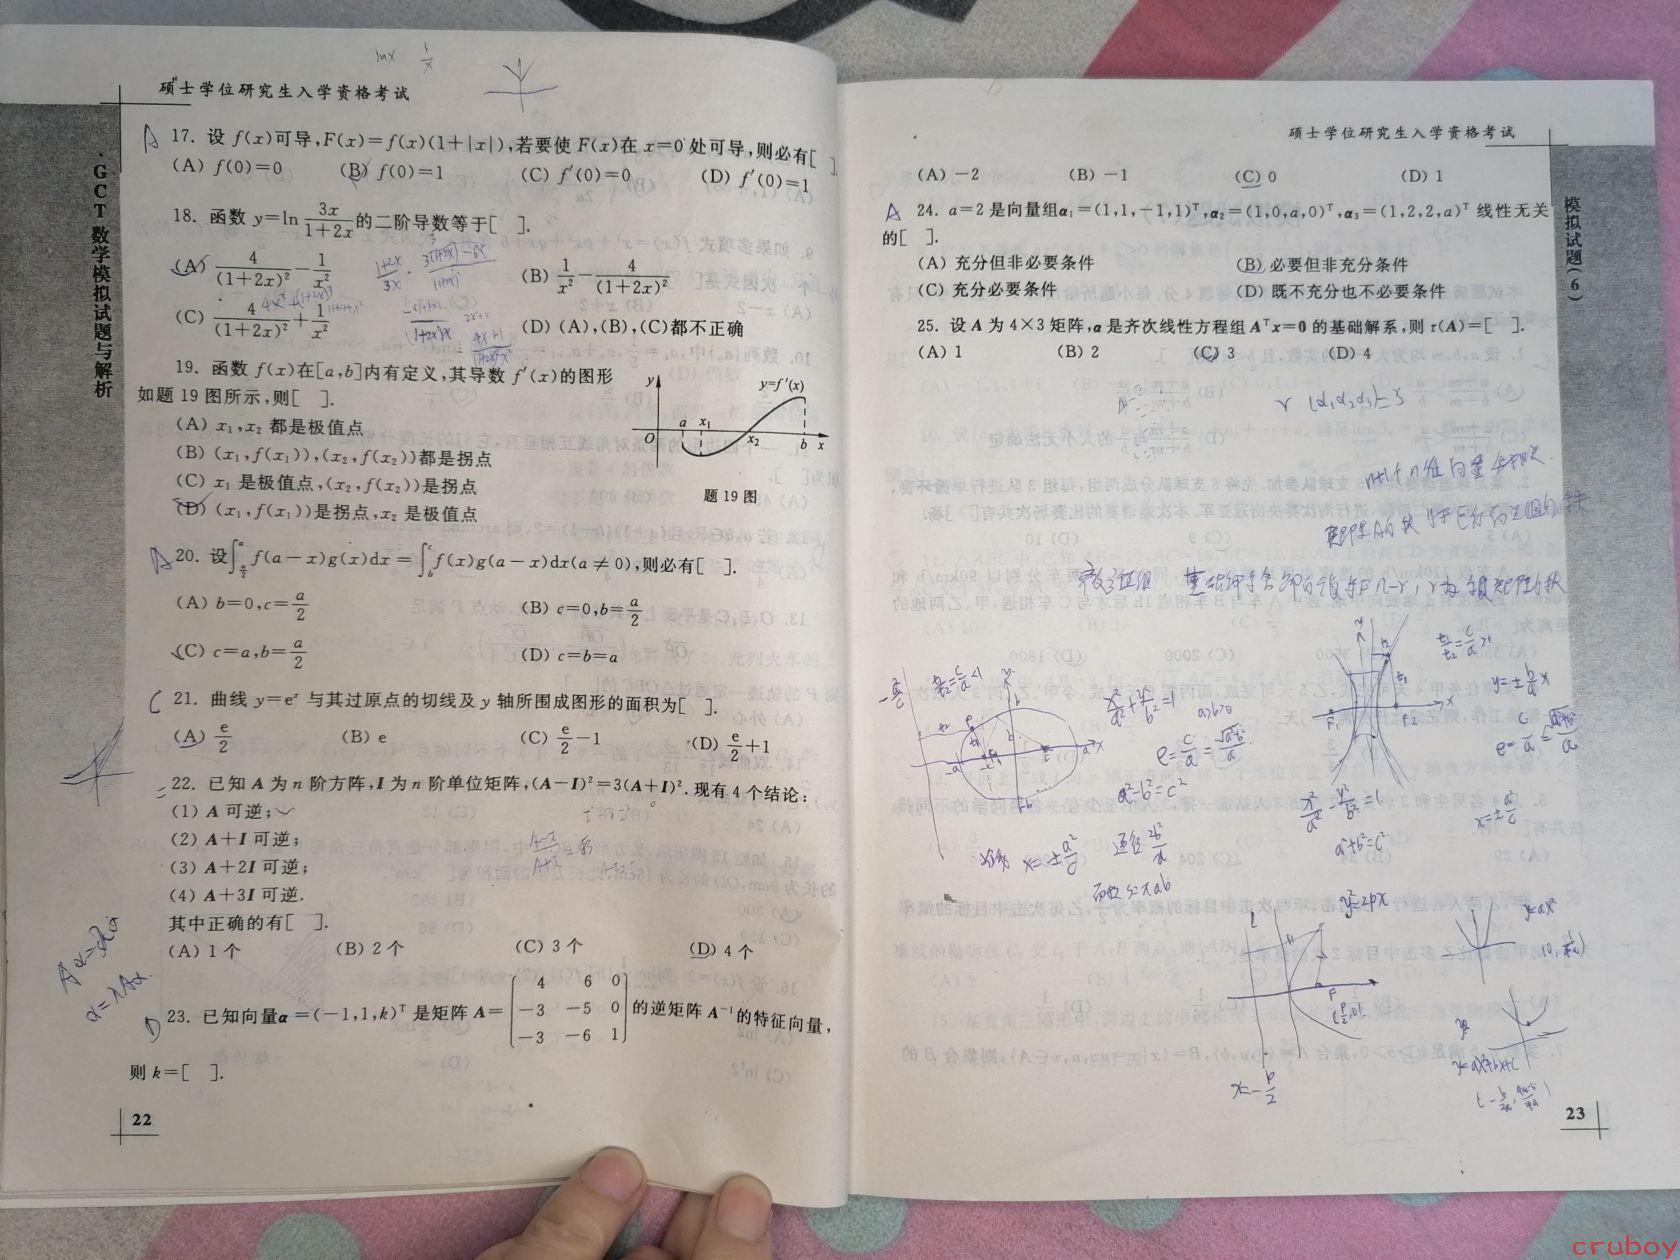 硕士学位研究生入学资格考试
lnx 1/x
·GCT数学模拟试题与解析
A 17. 设 f(x)可导,F(x)=f(x)(1+|x|),若要使 F(x)在 x=0 处可导,则必有[ ].
(A) f(0)=0 (B) f(0)=1 (C) f′(0)=0 (D) f′(0)=1
18. 函数 y=ln 3x/(1+2x) 的二阶导数等于[ ].
(A) 4/(1+2x)² − 1/x² (B) 1/x² − 4/(1+2x)²
(C) 4/(1+2x)² + 1/x² (D) (A),(B),(C)都不正确
19. 函数 f(x)在[a,b]内有定义,其导数 f′(x)的图形
如题 19 图所示,则[ ].
(A) x₁,x₂ 都是极值点
(B) (x₁,f(x₁)),(x₂,f(x₂))都是拐点
(C) x₁ 是极值点,(x₂,f(x₂))是拐点
(D) (x₁,f(x₁))是拐点,x₂ 是极值点
y y=f′(x)
O a x₁ x₂ b x
题 19 图
20. 设∫_{a/2}^{a} f(a−x)g(x)dx=∫_{b}^{c} f(x)g(a−x)dx(a≠0),则必有[ ].
(A) b=0,c=a/2 (B) c=0,b=a/2
(C) c=a,b=a/2 (D) c=b=a
C 21. 曲线 y=eˣ 与其过原点的切线及 y 轴所围成图形的面积为[ ].
(A) e/2 (B) e (C) e/2−1 (D) e/2+1
22. 已知 A 为 n 阶方阵,I 为 n 阶单位矩阵,(A−I)²=3(A+I)². 现有 4 个结论:
(1) A 可逆;
(2) A+I 可逆;
(3) A+2I 可逆;
(4) A+3I 可逆.
其中正确的有[ ].
(A) 1 个 (B) 2 个 (C) 3 个 (D) 4 个
D 23. 已知向量α=(−1,1,k)ᵀ 是矩阵 A=
4 6 0
−3 −5 0
−3 −6 1
的逆矩阵 A⁻¹的特征向量,
则 k=[ ].
22
硕士学位研究生入学资格考试
模拟试题(6)
(A) −2 (B) −1 (C) 0 (D) 1
A 24. a=2 是向量组α₁=(1,1,−1,1)ᵀ,α₂=(1,0,a,0)ᵀ,α₃=(1,2,2,a)ᵀ 线性无关
的[ ].
(A) 充分但非必要条件 (B) 必要但非充分条件
(C) 充分必要条件 (D) 既不充分也不必要条件
25. 设 A 为 4×3 矩阵,α 是齐次线性方程组 Aᵀx=0 的基础解系,则 r(A)=[ ].
(A) 1 (B) 2 (C) 3 (D) 4
r(α₁α₂α₃)=3
x²/a²+y²/b²=1
a>b>0
a²−b²=c²
x=±a²/c
通径 2b²/a
y=±b/a x
x²/a²−y²/b²=1
a²+b²=c²
x=±a²/c
y²=2px
y=ax²
x=−p/2
y=ax²+bx+c
23
cruboy